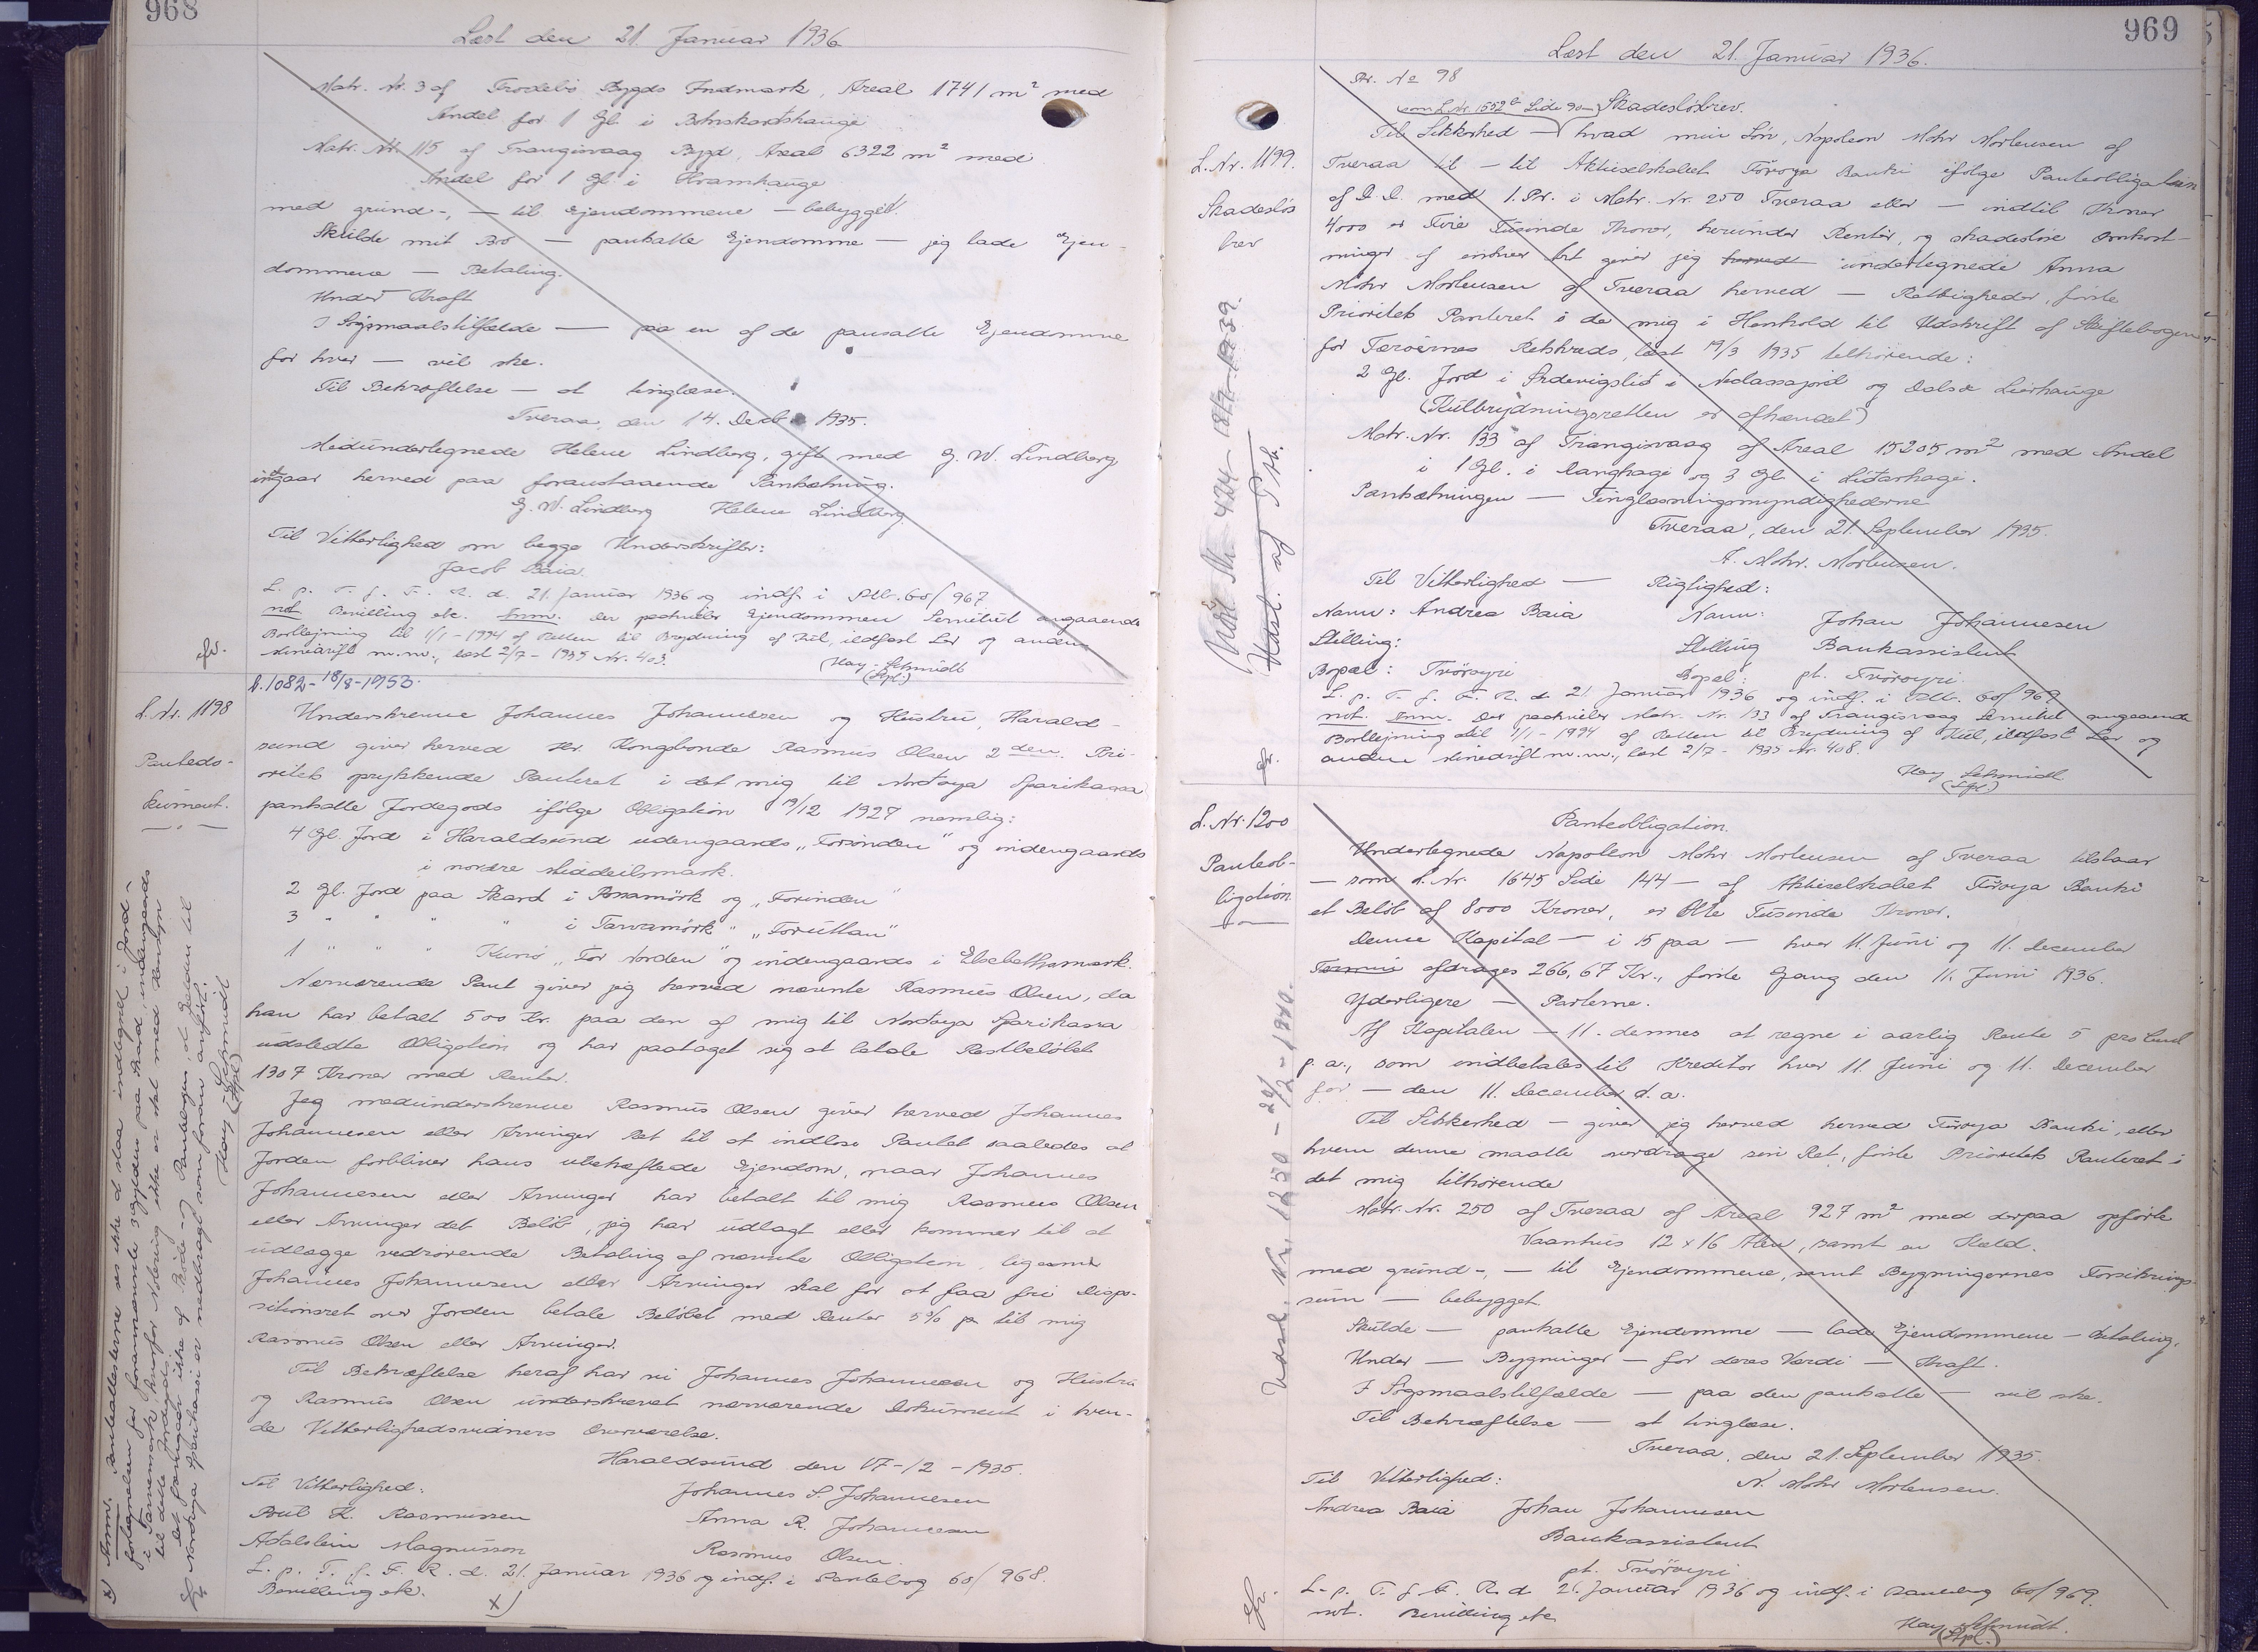 968
Læst den 21. Januar 1936
Matr. Nr. 3 af Frodebø Bygds Indmark, Areal 1741 m² med
Andel for 1 Gl. i
Matr. Nr. 115 af Trangisvaag Bygd, Areal 6322 m² med
Andel for 1 Gl. i Hvamhauge
med grund-, — til Ejendommene — bebygget.
Skulde mit Bo — pantsatte Ejendomme — jeg lade Ejen-
dommene — Betaling.
Under Kraft
I Søgsmaalstilfælde — paa en af de pansatte Ejendomme
for hver — vil ske.
Til Bekræftelse — at tinglæse.
Tveraa, den 14. Decb 1935.
Medundertegnede Helene Lindberg, gift med G. W. Lindberg
indgaar herved paa foranstaaende Pantsætning.
G. W. Lindberg Helene Lindberg
Til Vitterlighed om begge Underskrifter:
Jacob Baia.
L. p. T. f. F. R. d. 21. Januar 1936 og indf. i Ptb. 60/967
not. Bevilling etc. Anm. Der paahviler Ejendommen Servitut angaaende
Bortlejning til 1/1-1994 af Retten til Brydning af Kul, ildfast Ler og anden
Minedrift m.m., læst 2/7-1935 Nr. 403.
Hay-Schmidt
(Spl.)
A. 1082-18/8-1953.
L. Nr. 1198
Panteds-
kument.
Underskrevne Johannes Johannesen og Hustru, Harald-
sund giver herved Hr. Kongsbonde Rasmus Olsen 2den Pri-
oritets oprykkende Panteret i det mig til Nordoya Sparikassa
pantsatte Jordegods ifølge Obligation 19/12 1927 nemlig:
4 Gl. Jord i Haraldsund udengaards „Forinden" og indengaards
i nordre Middeilsmark.
2 Gl. Jord paa Skard i Bossamørk og „Forinden"
3 " " " i Tarvamørk " „Foruttan"
1 " " " Kunø „For Norden" og indengaards i Elsebethsmark.
Nærværende Pant giver jeg herved nævnte Rasmus Olsen, da
han har betalt 500 Kr. paa den af mig til Nordoya Sparikassa
udstedte Obligation og har paataget sig at betale Restbeløbet
1307 Kroner med Renter.
Jeg medunderskrevne Rasmus Olsen giver herved Johannes
Johannesen eller Arvinger Ret til at indløse Pantet saaledes at
Jorden forbliver hans ubehæftede Ejendom, naar Johannes
Johannesen eller Arvinger har betalt til mig Rasmus Olsen
eller Arvinger det Beløb, jeg har udlagt eller kommer til at
udlægge vedrørende Betaling af nævnte Obligation, ligesom
Johannes Johannesen eller Arvinger skal for at faa fri Dispo-
sitionsret over Jorden betale Beløbet med Renter 5% p til mig
Rasmus Olsen eller Arvinger.
Til Bekræftelse heraf har vi Johannes Johannesen og Hustru
og Rasmus Olsen underskrevet nærværende Dokument i tven-
de Vitterlighedsvidners Overværelse.
Haraldsund den 17-12-1935.
Til Vitterlighed:
Johannes S. Johannesen
Poul H. Rasmussen
Anna R. Johannesen
Adalstein Magnusson
Rasmus Olsen.
L. p. T. f. F. R. d. 21. Januar 1936 og indf. i Pantebog 60/968.
Bevilling etc.
x)
x) Anm. Panteattesterne ses ikke at staa indtegnet i Jord-
fortegnelsen for fornævnte Jordegods paa Skard, indengaards
i Tarvamørk, hvorfor Notering ikke er sket med Hensyn
til dette Jordegods.
Det fremgaar ikke af Skøde- og Pantebogen, at Gælden til
Nordoya Sparikassi er nedbragt som foran anført.
Hay-Schmidt
(Spl.)
969
Læst den 21. Januar 1936.
An. No 98
som L. Nr. 1552 b Side 90 — Skadesløsbrev.
L. Nr. 1199.
Skadesløs
brev
Til Sikkerhed — hvad min Søn, Napoleon Mohr Mortensen af
Tveraa til — til Aktieselskabet Föroya Banki ifølge Panteobligation
af D. D. med 1. Pr. i Matr. Nr. 250 Tveraa eller — indtil Kroner
4000 er Fire Tusinde Kroner, herunder Renter, og skadesløse Omkost-
ninger af enhver Art giver jeg herved undertegnede Anna
Mohr Mortensen af Tveraa herved — Rettigheder, første
Prioritets Panteret i de mig i Henhold til Udskrift af Skiftebogen
for Færøernes Retskreds, læst 19/3 1935 tilhørende:
2 Gl. Jord i Ardevigslid i Neclassajord og Dalsa Lierhauge
(Kulbrydningsretten er afhændet)
Matr. Nr. 133 af Trangisvaag af Areal 15205 m² med Andel
i 1 Gl. i Langhagi og 3 Gl. i Lidarhagi.
Pantsætningen — Tinglæsningsmyndighederne
Tveraa, den 21. September 1935.
A. Mohr. Mortensen.
Til Vitterlighed — Rigtighed:
Navn: Andrea Baia Navn: Johan Johannesen
Stilling: Stilling Bankassistent
Bopæl: Tvöroyri Bopæl: pt. Tvöroyri
L. p. T. f. F. R. d. 21. Januar 1936 og indf. i Ptb. 60/969
not. Anm. Der paahviler Matr. Nr. 133 af Trangisvaag Servitut angaaende
Bortlejning til 1/1-1994 af Retten til Brydning af Kul, ildfast Ler og
anden Minedrift m.m., læst 2/7-1935 Nr. 408.
Hay Schmidt
(Spl)
L. Nr. 1200
Panteob-
ligation
Panteobligation.
Undertegnede Napoleon Mohr Mortensen af Tveraa tilstaar
— som L. Nr. 1645 Side 144 — af Aktieselskabet Föroya Banki
et Beløb af 8000 Kroner, er Otte Tusinde Kroner.
Denne Kapital — i 15 paa — hver 11. Juni og 11. December
Termin afdrages 266,67 Kr., første Gang den 11. Juni 1936.
Yderligere — Parterne.
Af Kapitalen — 11. dennes at regne i aarlig Rente 5 pro Cent
p. a., som indbetales til Kreditor hver 11. Juni og 11. December
for — den 11. December d. a.
Til Sikkerhed — giver jeg herved herved Föroya Banki, eller
hvem denne maatte overdrage sin Ret, første Prioritets Panteret i
det mig tilhørende
Matr. Nr. 250 af Tveraa af Areal 927 m² med derpaa opførte
Vaanhus 12 x 16 Alen, samt en Kæld.
med grund-, — til Ejendommene, samt Bygningernes Forsikrings-
sum — bebygget.
Skulde — pantsatte Ejendomme — lade Ejendommene — Betaling.
Under — Bygninger — for deres Værdi — Kraft.
I Søgsmaalstilfælde — paa den pantsatte — vil ske.
Til Bekræftelse — at tinglæse.
Tveraa, den 21. September 1935.
Til Vitterlighed:
N. Mohr Mortensen.
Andrea Baia Johan Johannesen
Bankassistent
pt. Tvöroyri
L. p. T. f. F. R. d. 21. Januar 1936 og indf. i Pantebog 60/969.
not. Bevilling etc
Hay Schmidt.
(Spl.)
Udsl. Nr. 1250 - 24/2 - 1940.